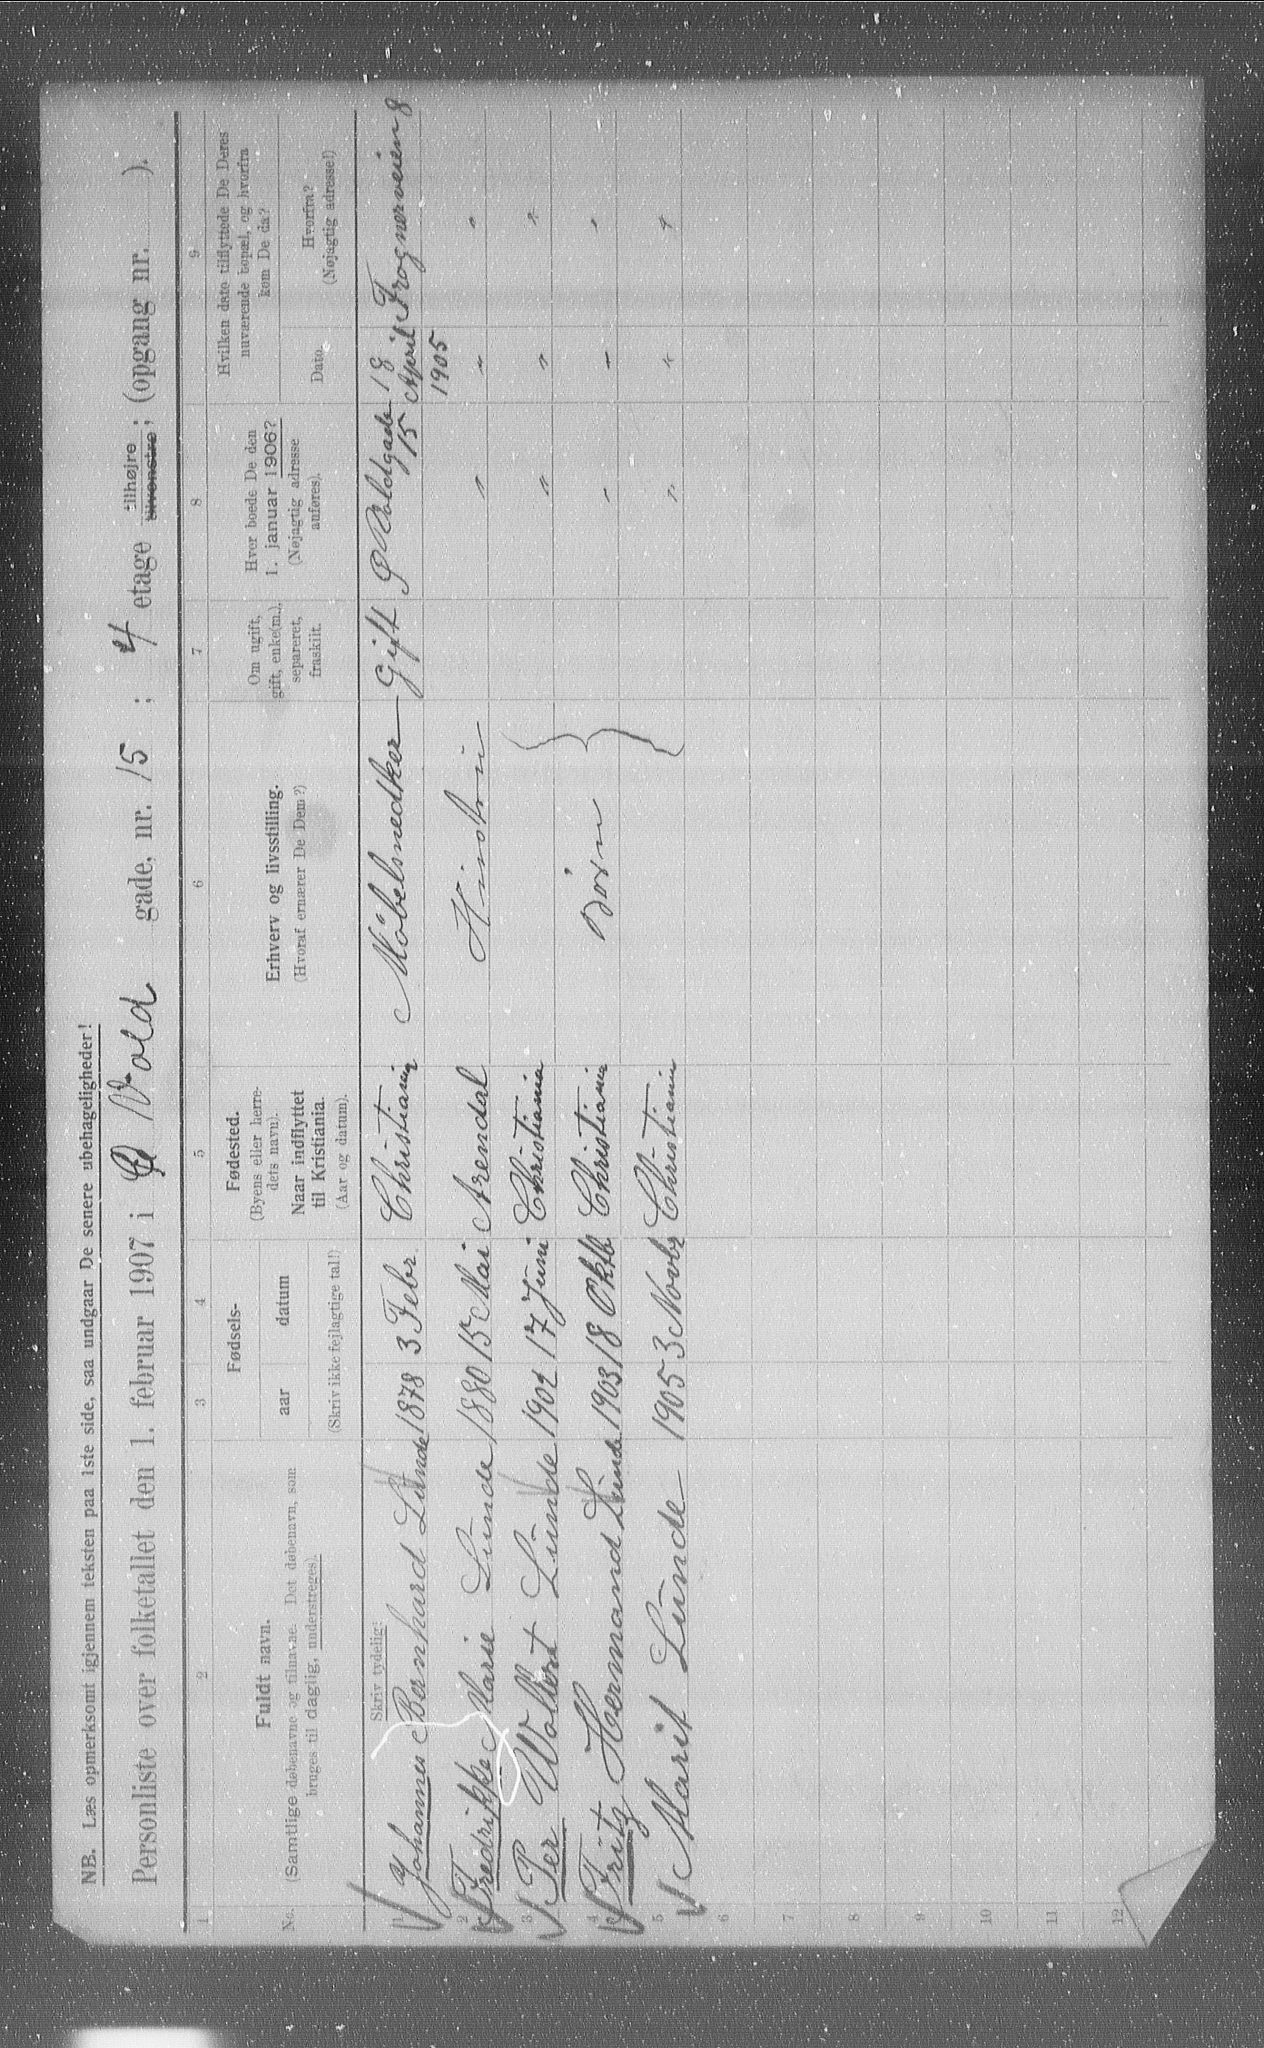 NB. Læs opmerksomt igjennem teksten paa 1ste side, saa undgaar De senere ubehageligheder!
Personliste over folketallet den 1. februar 1907 i Ø Vold gade, nr. 15 ; 4 etage tilhøjre tilvenstre; (opgang nr. ).
1 2 3 4 5 6 7 8 9
No.
Fuldt navn.
(Samtlige døbenavne og tilnavne. Det døbenavn, som
bruges til daglig, understreges).
Fødsels-
aar datum
(Skriv ikke fejlagtige tal!)
Fødested.
(Byens eller herre-
dets navn).
Naar indflyttet
til Kristiania.
(Aar og datum).
Erhverv og livsstilling.
(Hvoraf ernærer De Dem?)
Om ugift,
gift, enke(m.),
separeret,
fraskilt.
Hvor boede De den
1. januar 1906?
(Nøjagtig adresse
anføres).
Hvilken dato tilflyttede De Deres
nuværende bopæl, og hvorfra
kom De da?
Dato.
Hvorfra?
(Nøjagtig adresse!)
Skriv tydelig:
1 Johannes Bernhard Lunde 1878 3 Febr. Christiania Möbelsnedker Gift Ø Voldgade 15 18 April 1905 Frognerveien 8
2 Fredrikke Marie Lunde 1880 15 Mai Arendal Hustru " " "
3 Per Wollert Lunde 1902 17 Juni Christiania " " "
4 Fritz Hermand Lunde 1903 18 Oktb Christiania Börn " " "
5 Marit Lunde 1905 3 Novbr Christiania " " "
6
7
8
9
10
11
12